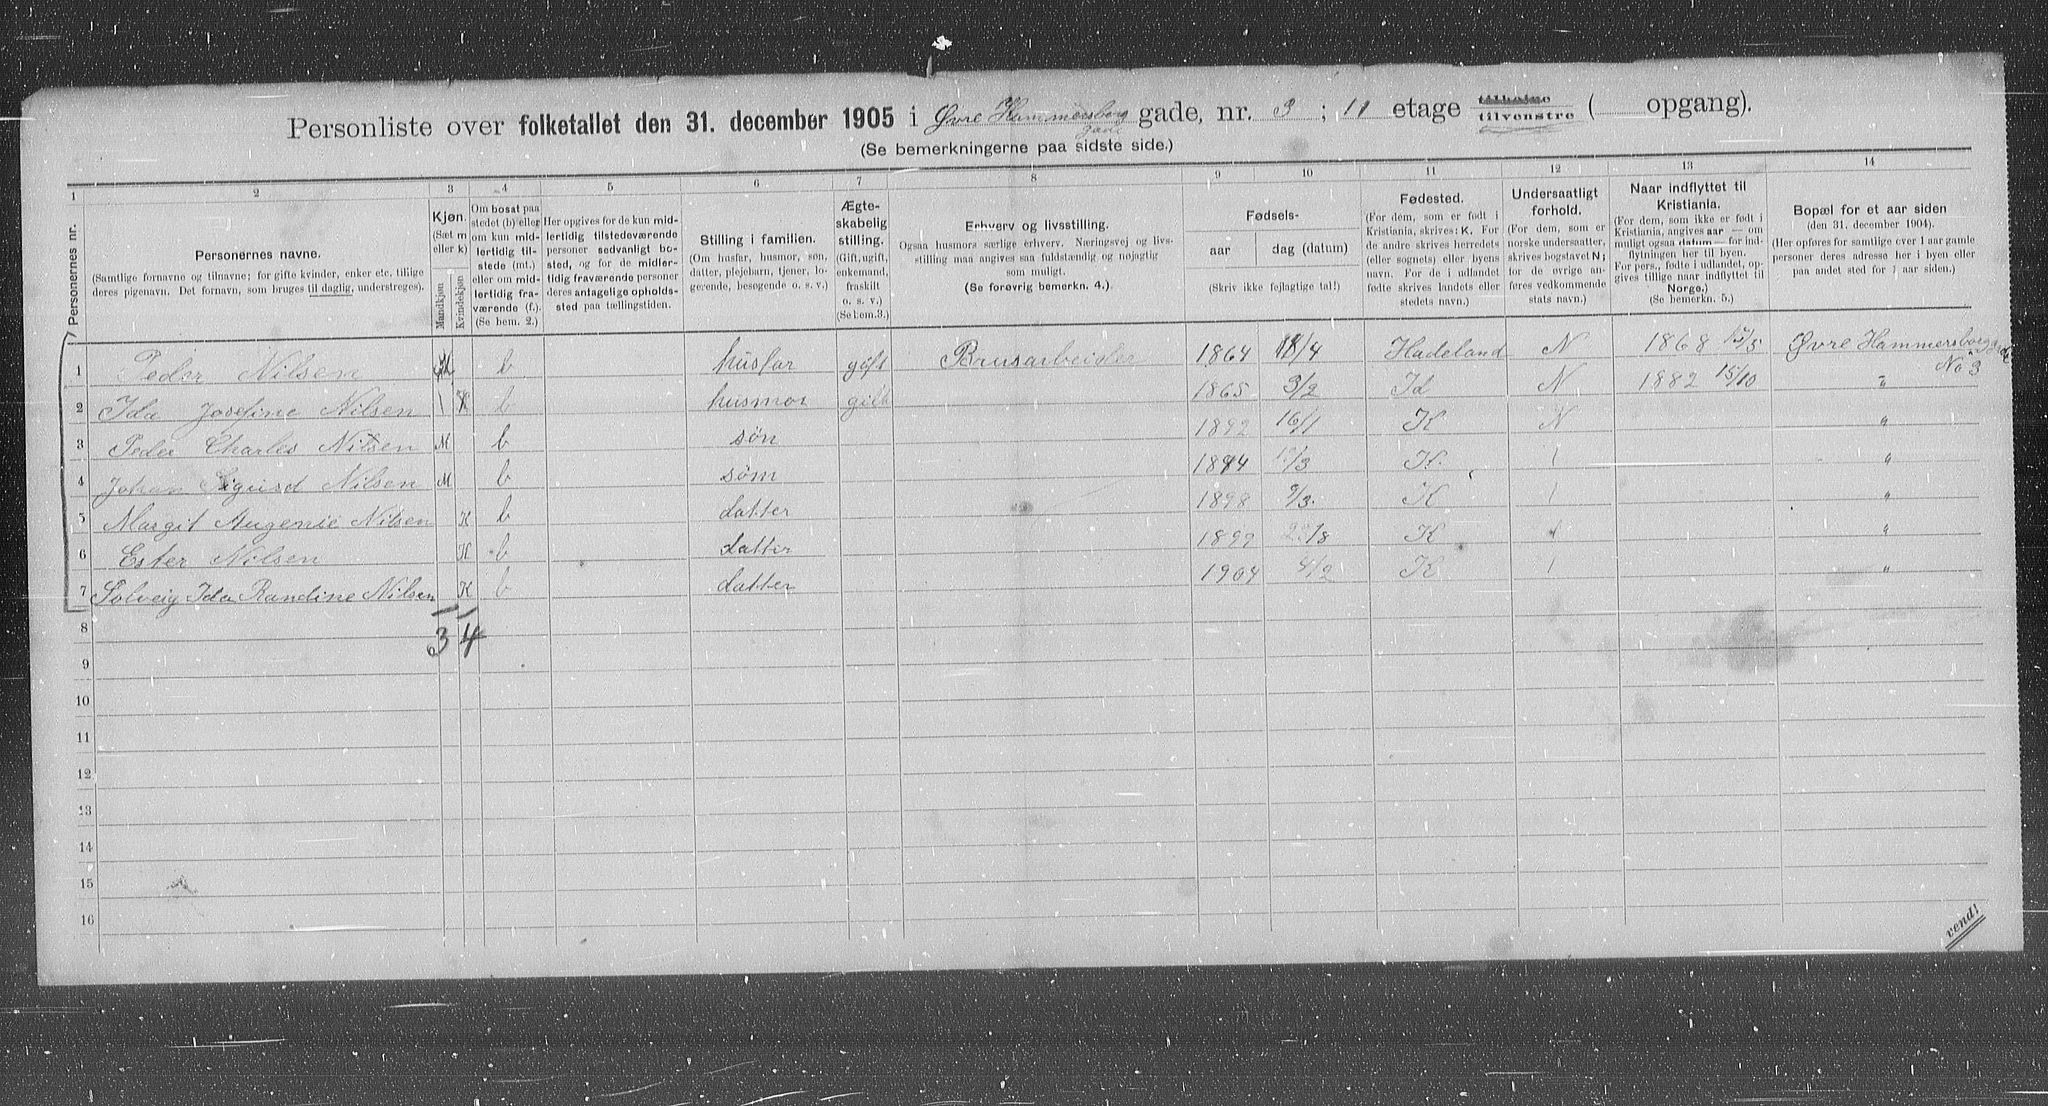 Personliste over folketallet den 31. december 1905 i Øvre Hammersborg gade gade, nr. 3 ; 11 etage tilhøire tilvenstre ( opgang).
(Se bemerkningerne paa sidste side.)
1 2 3 4 5 6 7 8 9 10 11 12 13 14
Personernes nr.
Personernes navne.
(Samtlige fornavne og tilnavne; for gifte kvinder, enker etc. tillige
deres pigenavn. Det fornavn, som bruges til daglig, understreges).
Kjøn.
(Sæt m
eller k)
Mandkjøn
Kvindekjøn
Om bosat paa
stedet (b) eller
om kun mid-
lertidig til-
stede (mt.)
eller om mid-
lertidig fra-
værende (f.).
(Se bem. 2.)
Her opgives for de kun mid-
lertidig tilstedeværende
personer sedvanligt bo-
sted, og for de midler-
tidig fraværende personer
deres antagelige opholds-
sted paa tællingstiden.
Stilling i familien.
(Om husfar, husmor, søn,
datter, plejebarn, tjener, lo-
gerende, besøgende o. s. v.)
Ægte-
skabelig
stilling.
(Gift, ugift,
enkemand,
fraskilt
o. s. v.)
(Se bem. 3.)
Erhverv og livsstilling.
Ogsaa husmors særlige erhverv. Næringsvej og livs-
stilling maa angives saa fuldstændig og nøjagtig
som muligt.
(Se forøvrig bemerkn. 4.)
Fødsels-
aar dag (datum)
(Skriv ikke fejlagtige tal!)
Fødested.
(For dem, som er født i
Kristiania, skrives: K. For
de andre skrives herredets
(eller sognets) eller byens
navn. For de i udlandet
fødte skrives landets eller
stedets navn.)
Undersaatligt
forhold.
(For dem, som er
norske undersaatter,
skrives bogstavet N;
for de øvrige an-
føres vedkommende
stats navn.)
Naar indflyttet til
Kristiania.
(For dem, som ikke er født i
Kristiania, angives aar — om
muligt ogsaa datum — for ind-
flytningen her til byen.
For pers., fødte i udlandet, op-
gives tillige naar indflyttet til
Norge.)
(Se bemerkn. 5.)
Bopæl for et aar siden
(den 31. december 1904).
(Her opføres for samtlige over 1 aar gamle
personer deres adresse her i byen eller
paa andet sted for 1 aar siden.)
1 Peder Nilsen M b husfar gift Brusarbeider 1864 /4 Hadeland N 1868 15/5 Øvre Hammersborggade No 3
2 Ida Josefine Nilsen K b husmor gift 1865 3/2 Id N 1882 15/10 "
3 Peder Charles Nilsen M b søn 1892 16/1 K N "
4 Johan Sigurd Nilsen M b søm 1894 /3 K. "
5 Margit Augenie Nilsen K b datter 1898 9/3. K "
6 Ester Nilsen K b datter 1899 /8 K "
7 Solveig Ida Randine Nilsen K b datter 1904 4/2 K "
3 4
8
9
10
11
12
13
14
15
16
vend!